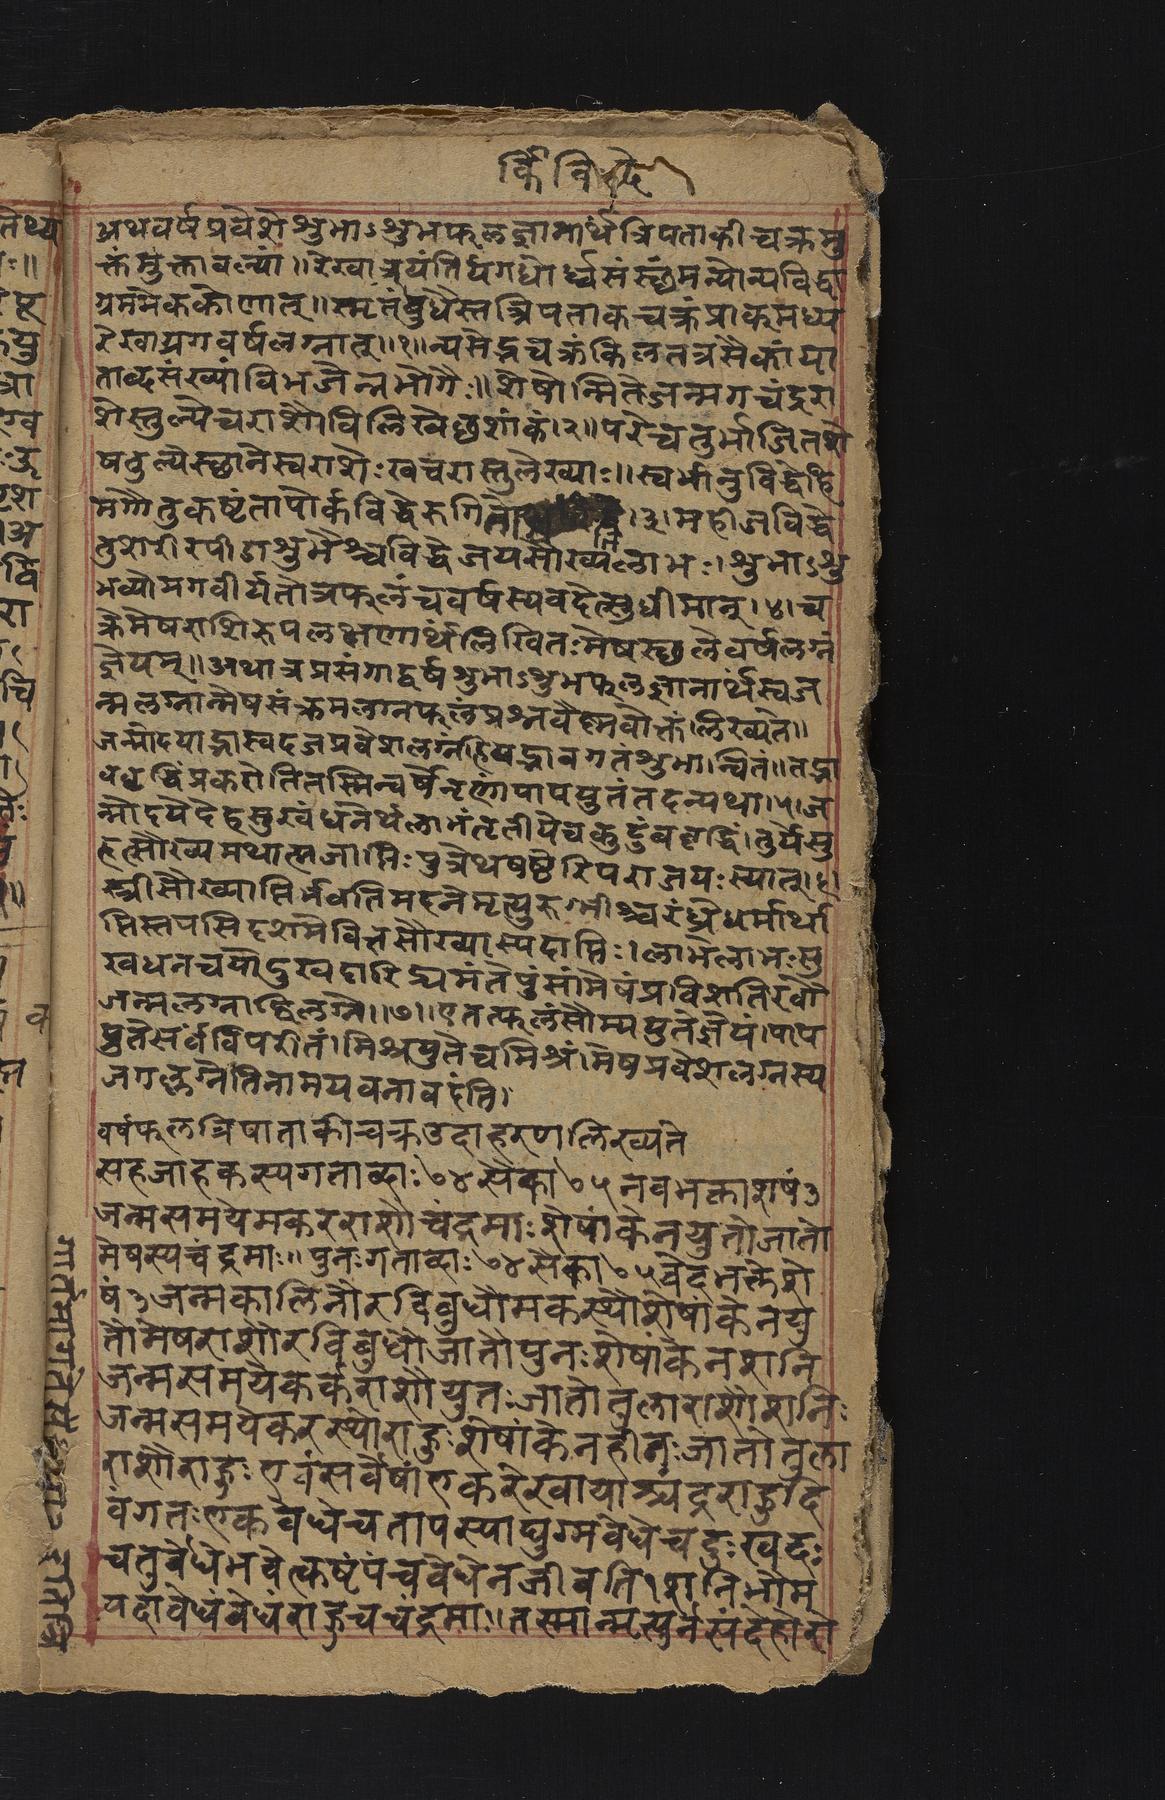 अथवर्षप्रवेशेशुभाऽशुभफलज्ञानार्थंत्रिपताकीचक्रमु
क्तंमुक्तावल्यां॥रेखात्रयंतिर्यगधोर्ध्वसंस्छमन्योन्यविद्धा
ग्रममेककोणात्॥स्मृतंबुधैस्तत्रिपताकचक्रंप्राक्मध्य
रेखाग्रगवर्षलग्नात्॥१॥न्यसेद्भचक्रंकिलतत्रसैकांया
ताब्दसंख्यांविभजेन्नभोगैः॥शेषोन्मितेजन्मगचंद्ररा
शेस्तुल्येचराशौविलिखेछशांकं।२॥परेचतुर्भाजितशे
षतुल्येस्छानेस्वराशेःखचरास्तुलेख्याः॥स्वर्भानुविद्धेहि
मगौतुकष्टंतापोर्कविद्धेरुगि।३।महीजविद्धे
तुशरीरपीडाशुभैश्चविद्धेजयसौख्यलाभः।शुभाऽशु
भव्योमगवीर्यतोत्रफलंचवर्षस्यवदेत्सुधीमान्।४।च
क्रेमेषराशिरुपलक्षणार्थंलिखितःमेषस्छलेवर्षलग्नं
ज्ञेयम्॥अथात्रप्रसंगाद्वर्षशुभाऽशुभफलज्ञानार्थंस्वज
न्मलग्नान्मेषसंक्रमलग्नफलंप्रश्नवैष्णवोक्तंलिख्यते॥
जन्मोदयाद्भास्वदजप्रवेशलग्नंहियद्भावगतंशुभान्वितं॥तद्भा
ववृद्धिंप्रकरोतितस्मिन्वर्षेनृणांपापयुतंतदन्यथा।५।ज
न्मोदयेदेहसुखंधनेर्थलाभंतृतीयेचकुटुंबवृद्धिं।तुर्येसु
हृत्सौख्यमथात्मजाप्तिःपुत्रेथषष्ठेरिपराजयःस्यात्।६।
स्त्रीसौख्याप्तिर्भवतिमदनेमृत्युरुग्भीश्चरंध्रेधर्मार्था
प्तिस्तपसिदशमेवित्तसौख्यास्पदाप्तिः।लाभेलाभःसु
खधनचयोदुखदारिद्र्यमंतेपुंसांमेषंप्रविशतिरवौ
जन्मलग्नाद्विलग्ने॥७॥एतत्फलंसौम्ययुतेज्ञेयं।पाप
युतेसर्वंविपरीतं।मिश्रयुतेचमिश्रं।मेषप्रवेशलग्नस्य
जगल्लग्नेतिनामयवनावदंति।
वर्षफलत्रिषाताकीचक्रउदाहरणलिख्यते
सहजाहकस्यगताब्दाः७४सैका७५नवभक्ताशेषं३
जन्मसमयेमकरराशौचंद्रमाःशेषांकेनयुतोजातो
मेषस्यचंद्रमाः॥पुनःगताब्दाः७४सैका७५वेदभक्तेशे
षं३जन्मकालिनौरविबुधौमकस्थौशेषांकेनयु
तौमेषराशौरविबुधौजातौपुनःशेषांकेनशनि
जन्मसमयेकर्कराशौयुतःजातोतुलाराशौशनिः
जन्मसमयेकरस्थोराहुःशेषांकेनहीनःजातोतुला
राशौराहुःएवंसर्वेषांएकरेखायाश्चंद्रराहुर्दि
वंगतःएकवेधेचतापस्याद्युग्मवेधेचदुःखदः
चतुर्वेधेभवेत्कष्टंपंचवेधेनजीवति।शनिभौम
यदावेधंवेधंराहुचचंद्रमा॥तस्मान्मत्युर्नसंदेहो